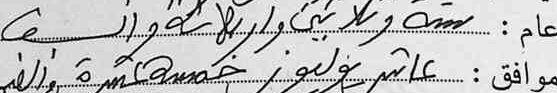 عام : ستة وثلاثين واربعمائة والف
موافق : عاشر يوليوز خمسة عشرة والفين